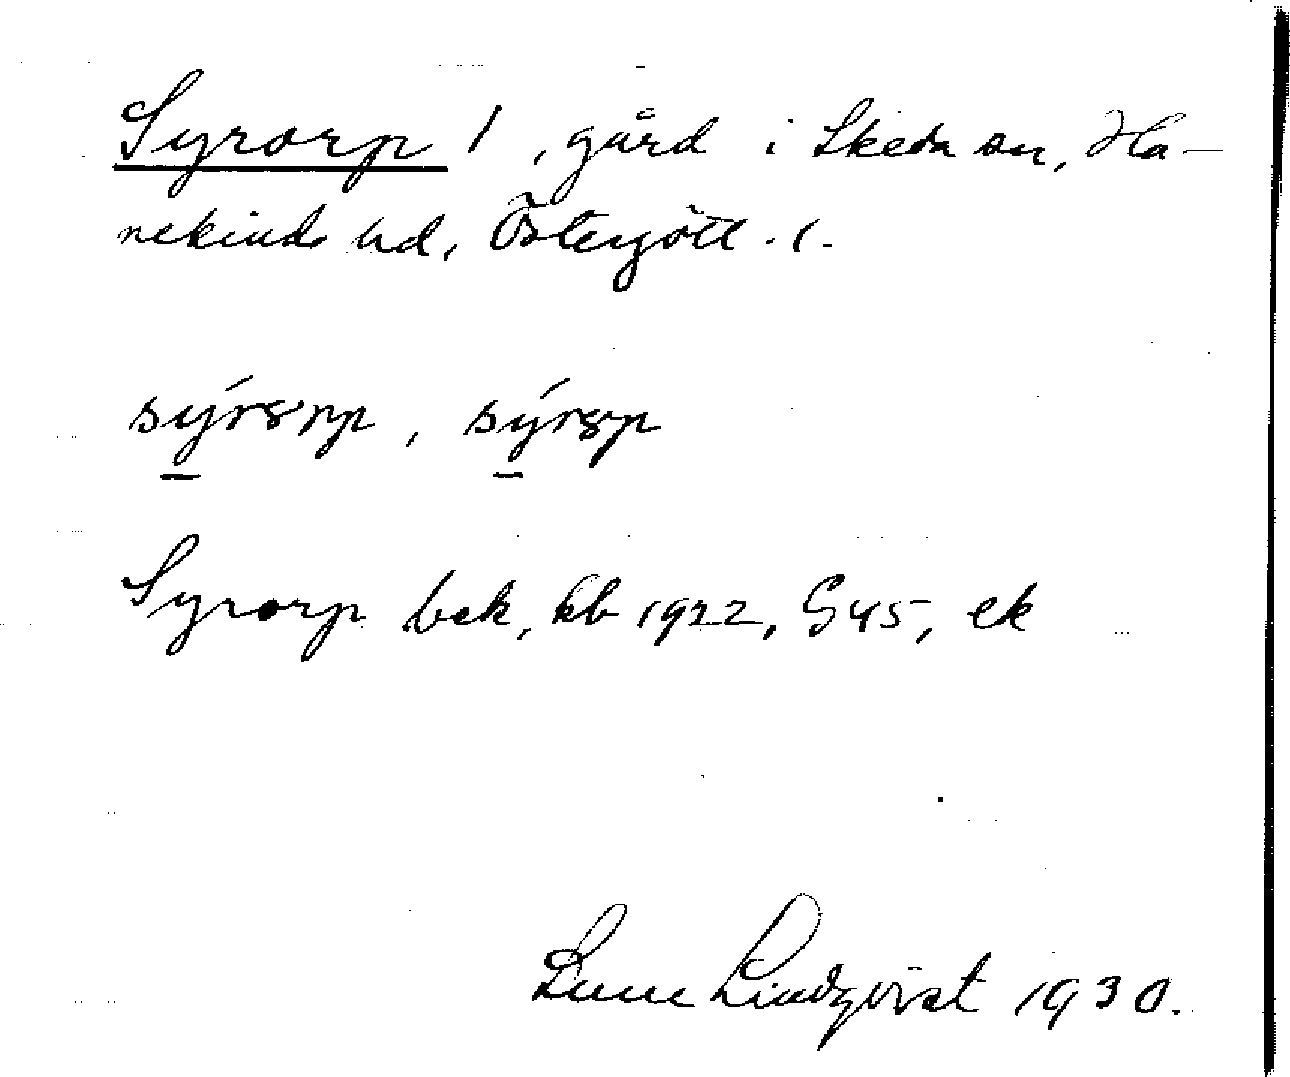 Syrorp 1, gård i Skeda sn, Ha-
nekinds hd, Östergötl. l.
Syrorp bek, kb 1922, G45, ek
Sune Lindqvist 1930.